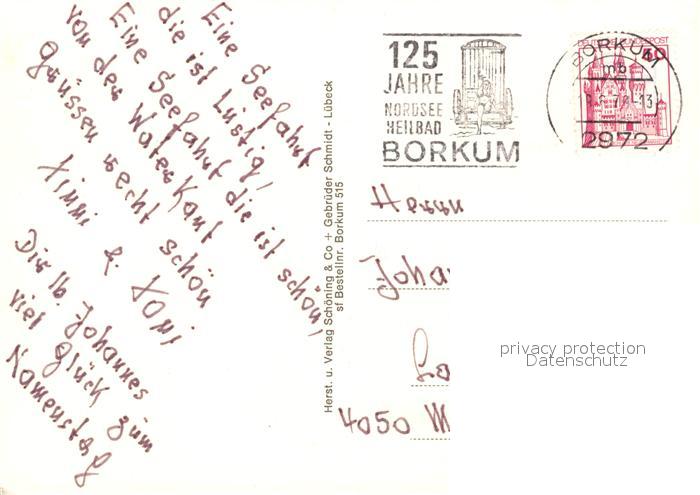 Eine Seefahrt
die ist lustig,
Eine Seefahrt die ist schön,
von der Waterkant
grüssen recht schön
Ximmi & Xomi
Dir lb. Johannes
viel Glück zum
Namenstag
Herst. u. Verlag Schöning & Co + Gebrüder Schmidt - Lübeck
sf Bestellnr. Borkum 515
125
JAHRE
NORDSEE
HEILBAD
BORKUM
DEUTSCHE BUNDESPOST
BORKUM
mb
2972
Herrn
Joha
4050 M
privacy protection
Datenschutz